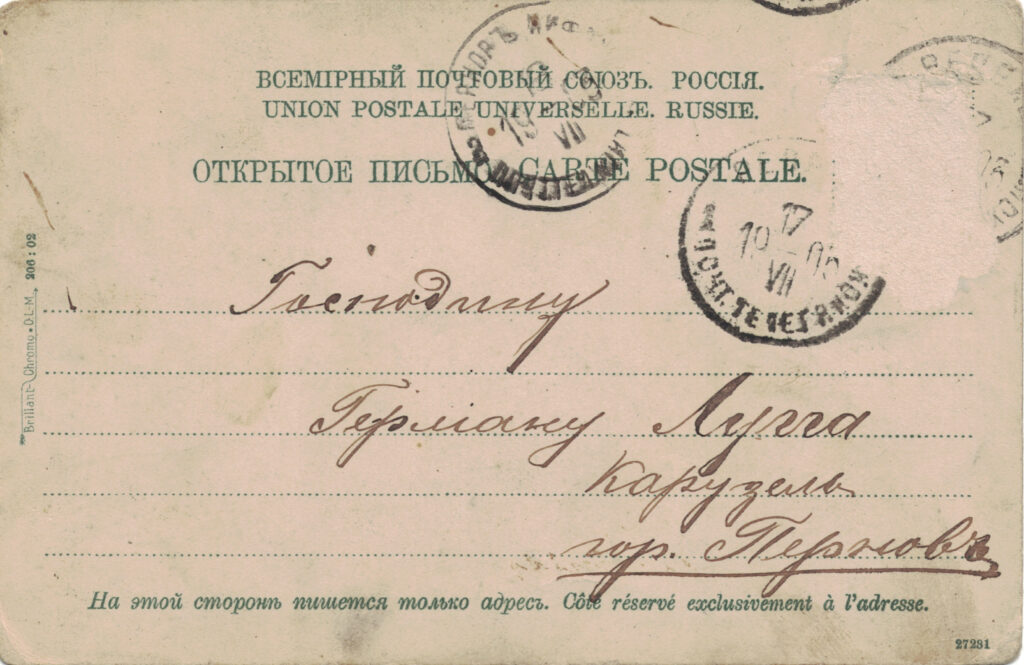 ВСЕМІРНЫЙ ПОЧТОВЫЙ СОЮЗЪ. РОССІЯ.
UNION POSTALE UNIVERSELLE. RUSSIE.
ОТКРЫТОЕ ПИСЬМО. CARTE POSTALE.
19 VII
17
19 05
VII
ПОЧТ. ТЕЛЕГР.
Господину
Герману Лугга
Карузель
гор. Перновъ
На этой сторонѣ пишется только адресъ. Côté réservé exclusivement à l'adresse.
Brillant-Chromo. O.L.M. 206:02
27291